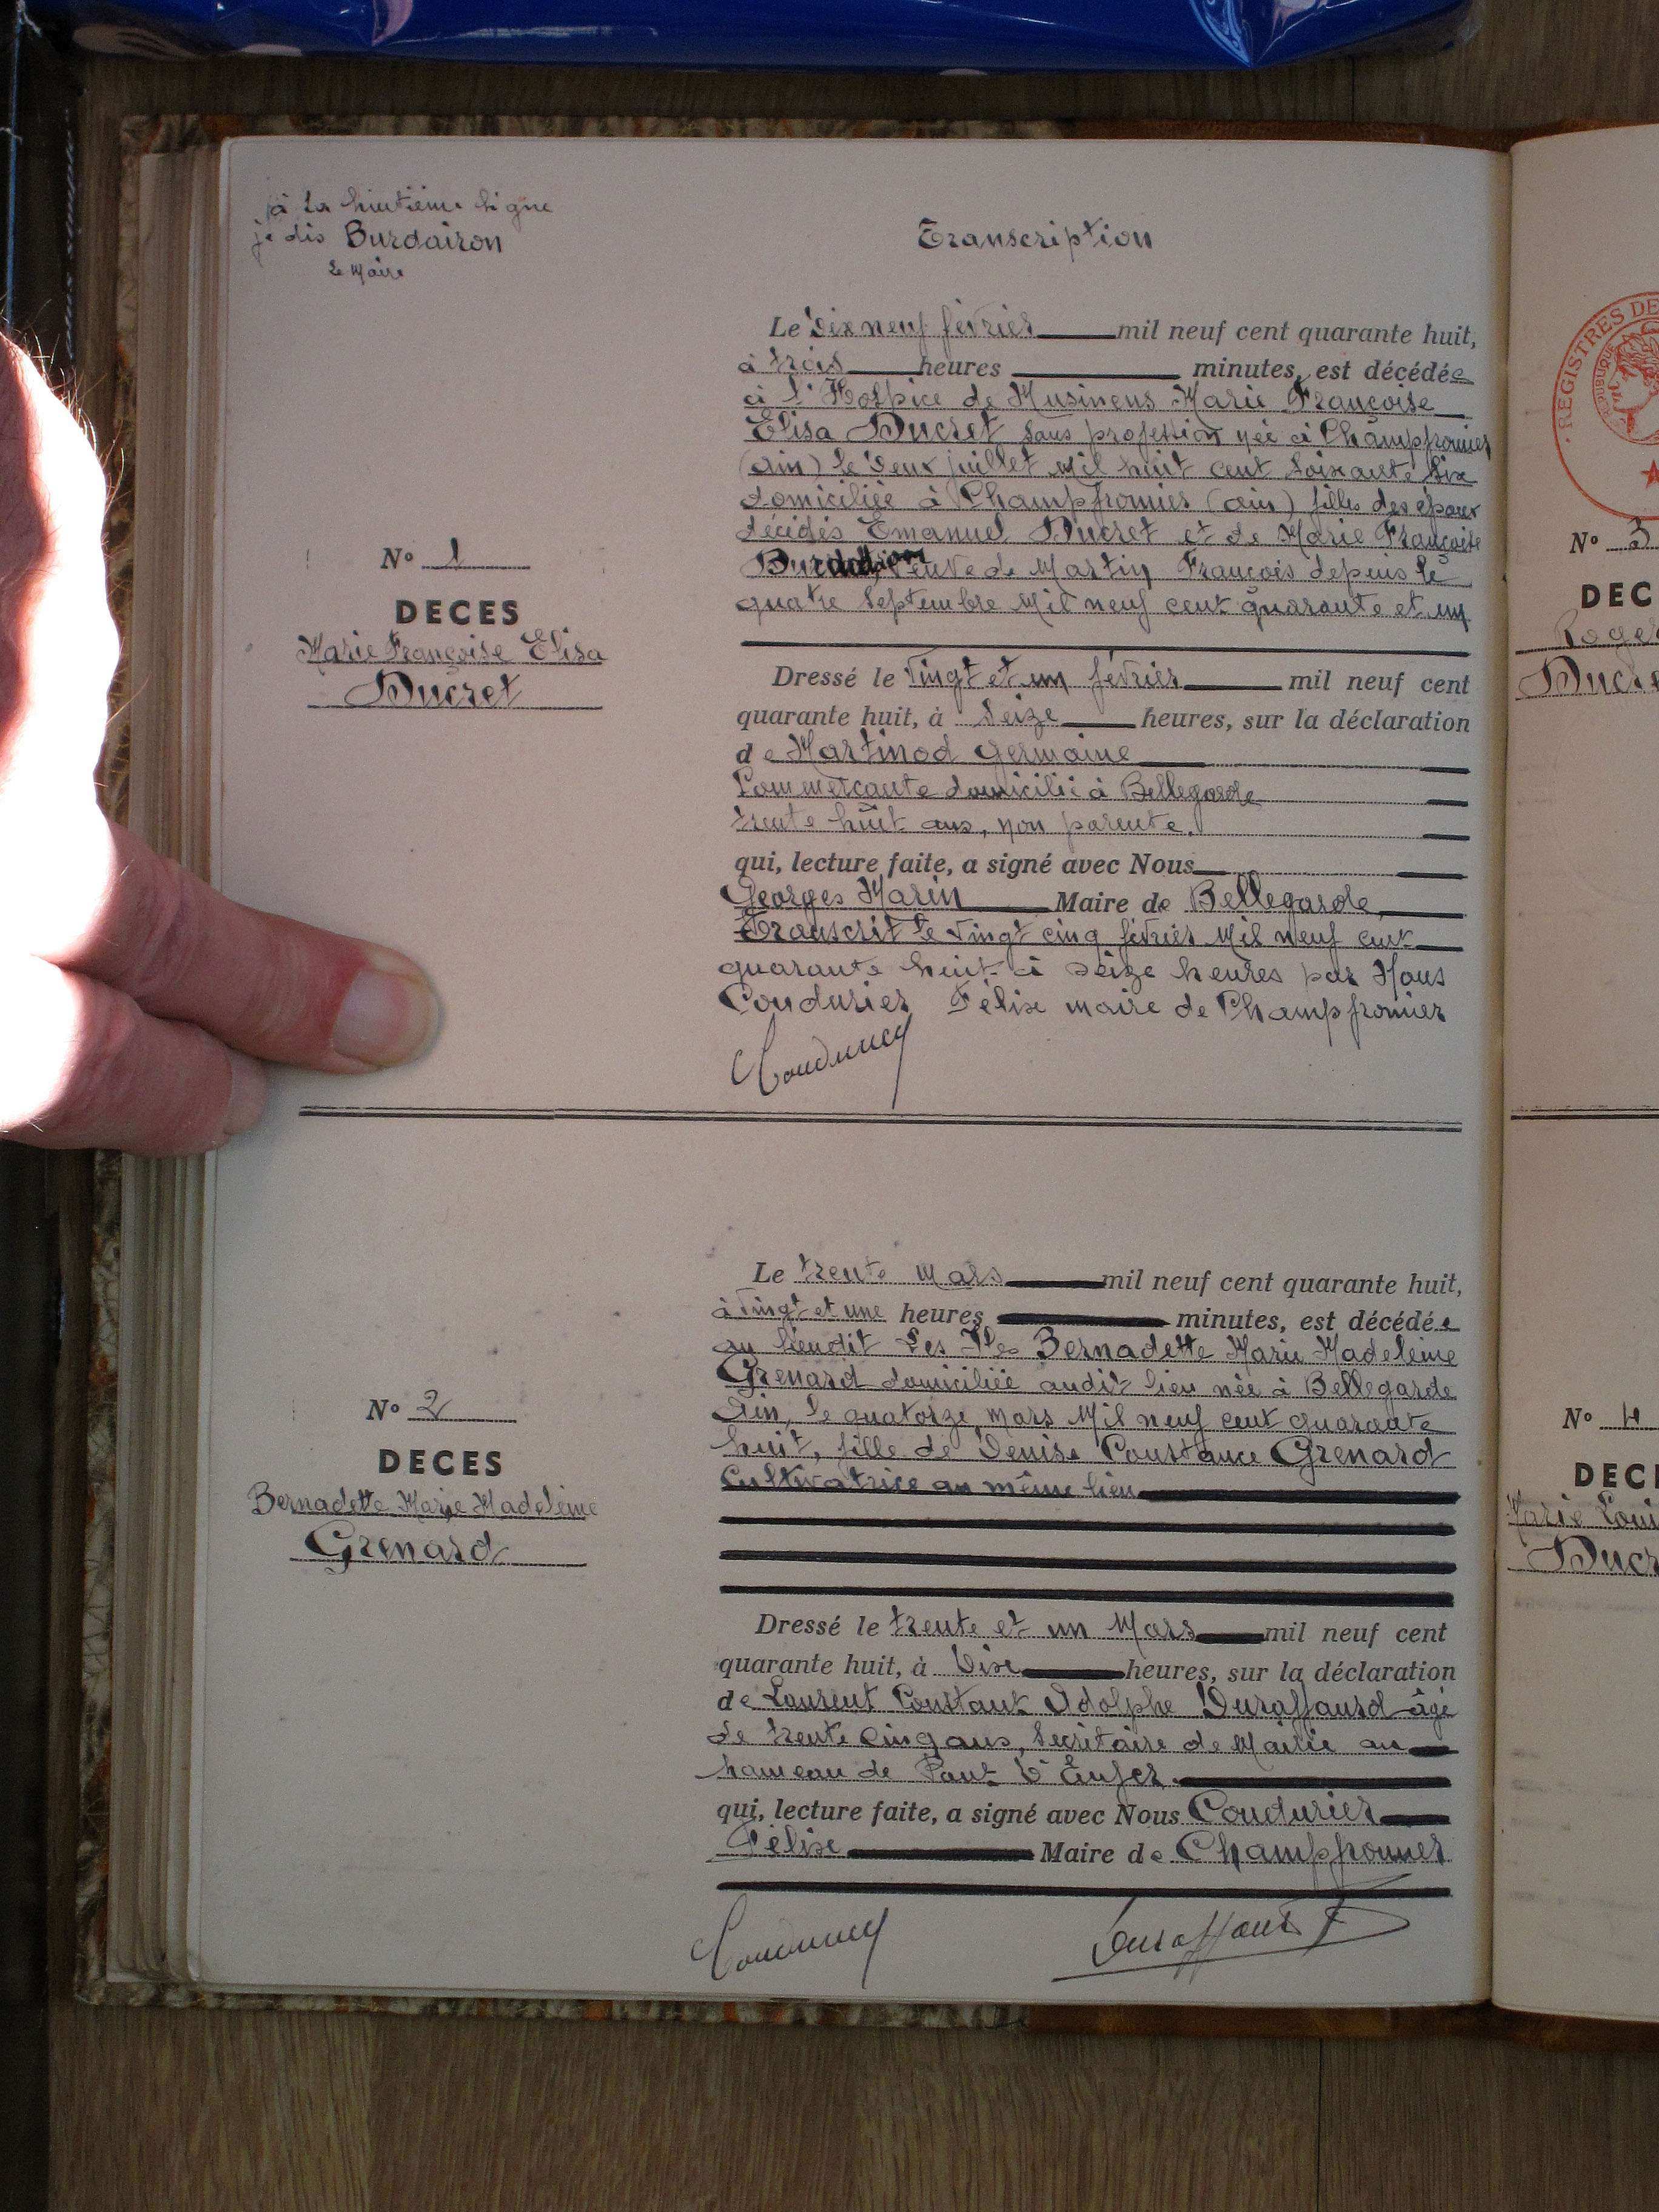 à la huitième ligne
je dis Burdairon
Le Maire
Transcription
Le dix neuf février mil neuf cent quarante huit,
à trois heures minutes, est décédée
à l'Hospice de Musinens Marie Françoise
Elisa Ducret sans profession née à Champfromier
(Ain) le deux juillet mil huit cent soixante six
domiciliée à Champfromier (ain) filles des époux
décédés Emanuel Ducret et de Marie Françoise
Burdairon, veuve de Martin François depuis le
quatre Septembre mil neuf cent quarante et un
N° 1
DECES
Marie Françoise Elisa
Ducret
Dressé le vingt et un février mil neuf cent
quarante huit, à seize heures, sur la déclaration
de Martinod Germaine
Commerçante domicilié à Bellegarde
trente huit ans, non parente.
qui, lecture faite, a signé avec Nous
Georges Marin Maire de Bellegarde,
Transcrit le vingt cinq février mil neuf cent
quarante huit à seize heures par Nous
Coudurier Félix maire de Champfromier
Coudurier
Le trente Mars mil neuf cent quarante huit,
à vingt et une heures minutes, est décédée
au lieudit Les Iles Bernadette Marie Madeleine
Grenard domiciliée audit lieu née à Bellegarde
Ain, le quatorze mars mil neuf cent quarante
huit, fille de Denise Constance Grenard
Cultivatrice au même lieu
N° 2
DECES
Bernadette Marie Madeleine
Grenard
Dressé le trente et un Mars mil neuf cent
quarante huit, à dix heures, sur la déclaration
de Laurent Constant Adolphe Duraffourd âgé
de trente cinq ans, secrétaire de Mairie au
hameau de Pont d'Enfer.
qui, lecture faite, a signé avec Nous Coudurier
Félix Maire de Champfromier
Coudurier
Duraffourd
REGISTRES DE
N° 3
DEC
Roger
Ducre
N° 4
DEC
Marie Loui
Ducr